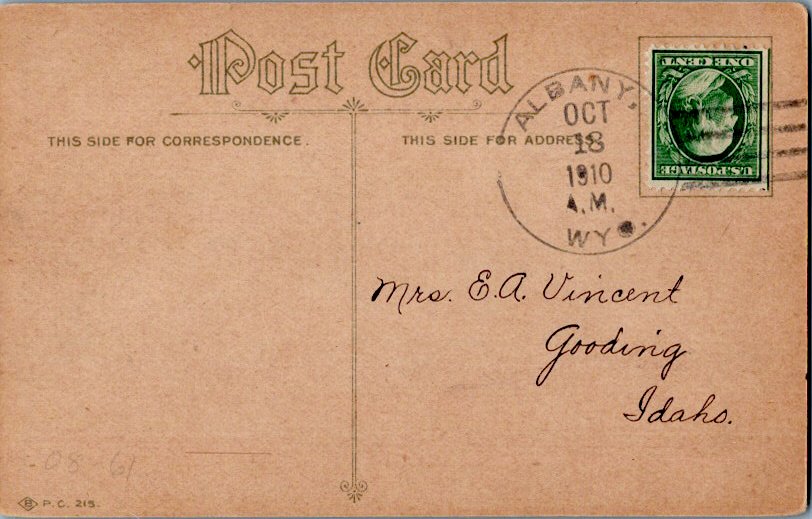 Post Card
THIS SIDE FOR CORRESPONDENCE.
THIS SIDE FOR ADDRESS.
U.S. POSTAGE
ONE CENT
ALBANY,
OCT
18
1910
A.M.
WYO.
Mrs. E.A. Vincent
Gooding
Idaho.
08-61
B P.C. 215.